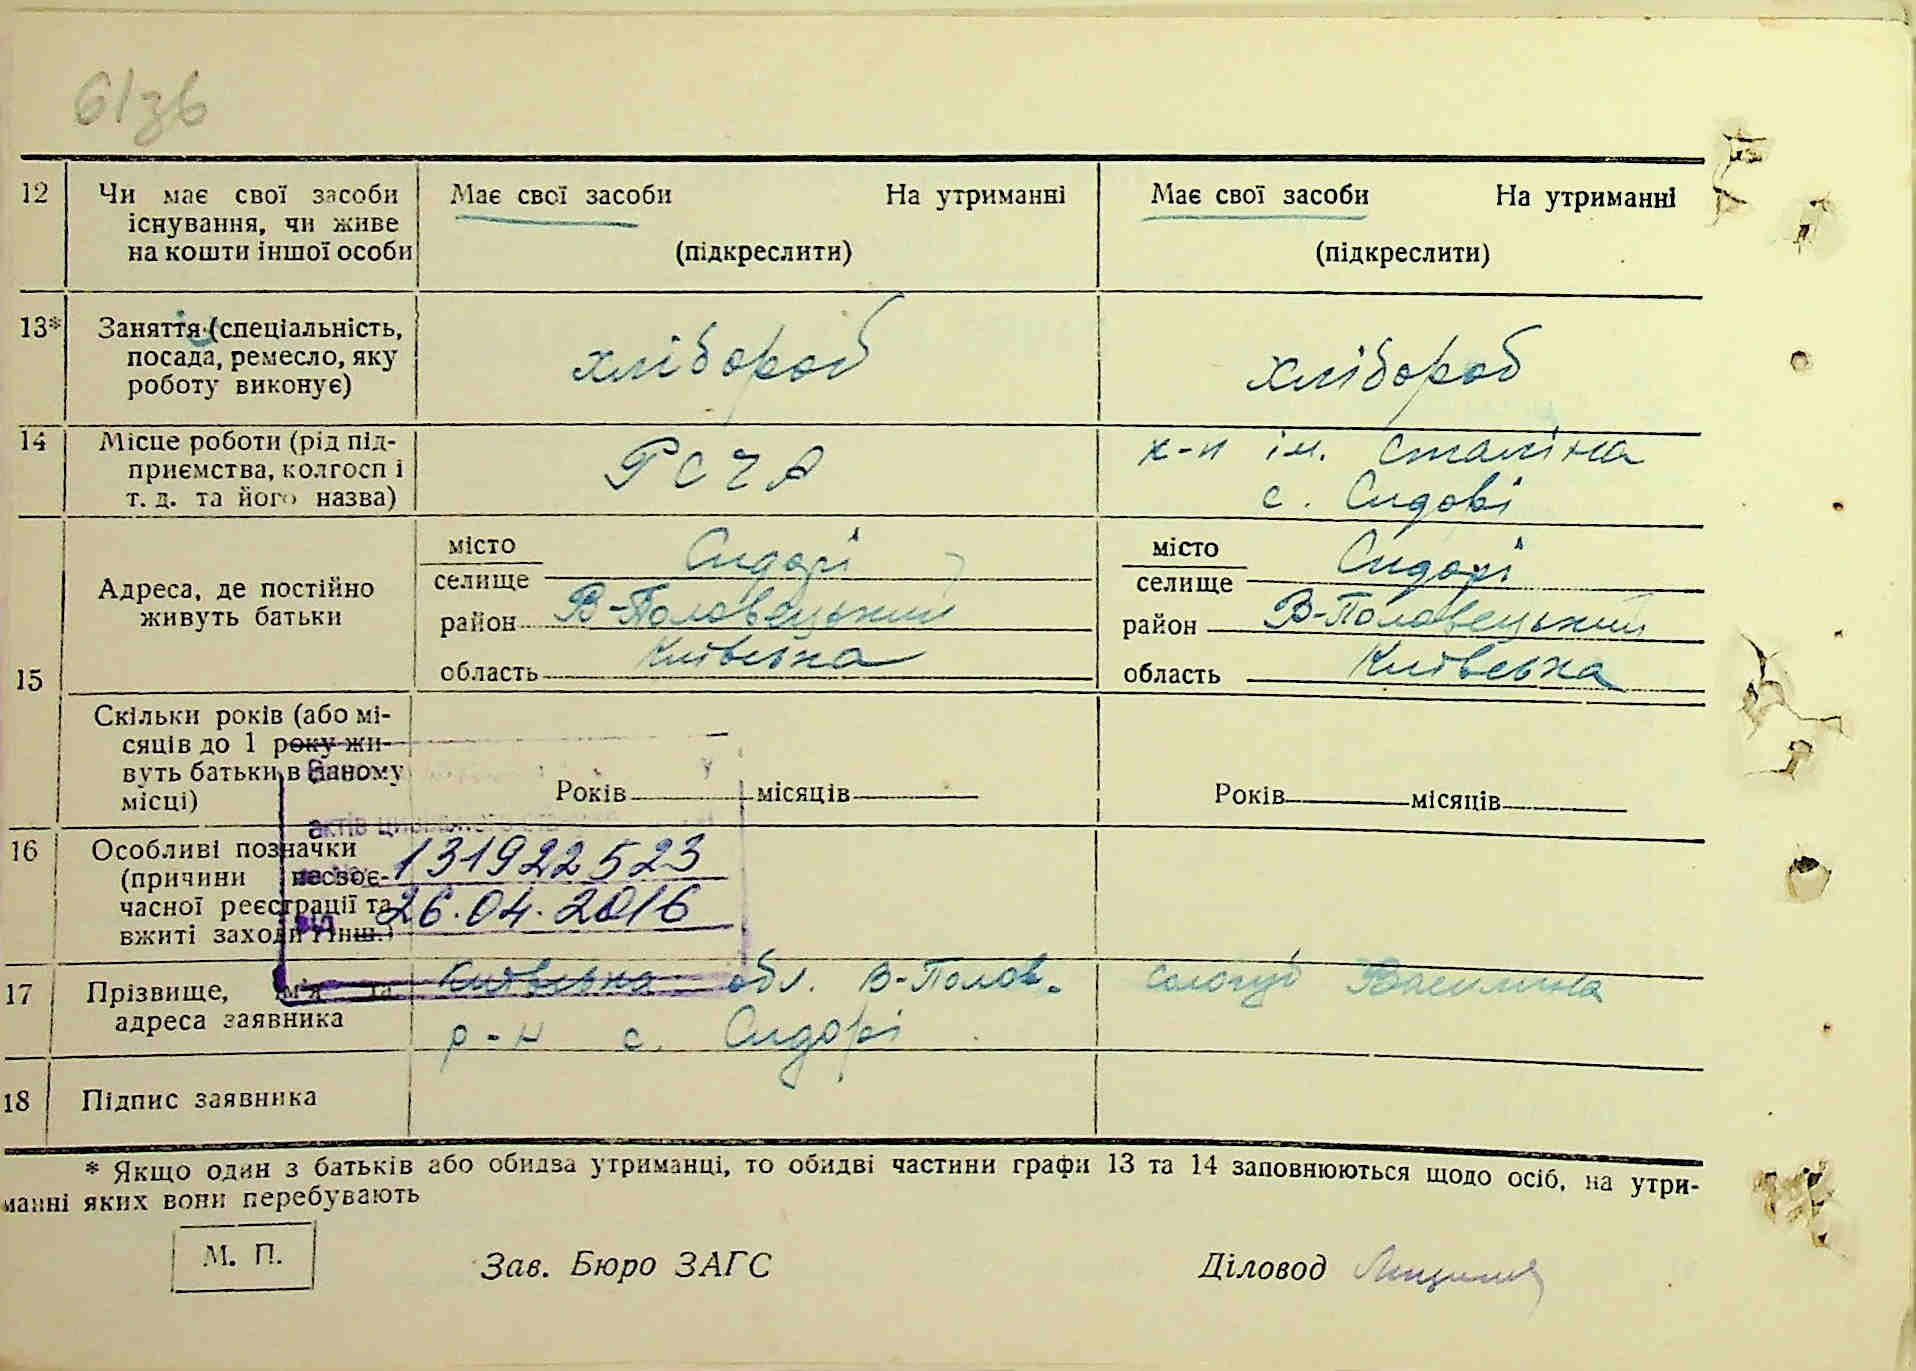 6/зв
12 Чи має свої засоби існування, чи живе на кошти іншої особи
Має свої засоби На утриманні
(підкреслити)
Має свої засоби На утриманні
(підкреслити)
13* Заняття (спеціальність, посада, ремесло, яку роботу виконує)
хлібороб
хлібороб
14 Місце роботи (рід підприємства, колгосп і т. д. та його назва)
РСЧА
к-п ім. Сталіна
с. Сидорі
15 Адреса, де постійно живуть батьки
місто
селище Сидорі
район В-Половецький
область Київська
місто
селище Сидорі
район В-Половецький
область Київська
Скільки років (або місяців до 1 року живуть батьки в даному місці)
Років місяців
Років місяців
актів цивільного
131922523
від 26.04.2016
16 Особливі позначки (причини несвоєчасної реєстрації та вжиті заходи і інш.)
17 Прізвище, ім'я та адреса заявника
Київська обл. В-Полов.
р-н с. Сидорі
Сологуб Василина
18 Підпис заявника
* Якщо один з батьків або обидва утриманці, то обидві частини графи 13 та 14 заповнюються щодо осіб, на утри-
манні яких вони перебувають
М. П.
Зав. Бюро ЗАГС
Діловод